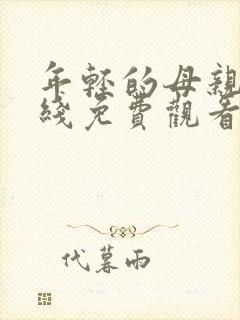 年轻的母親
綫免費觀看
代暮雨